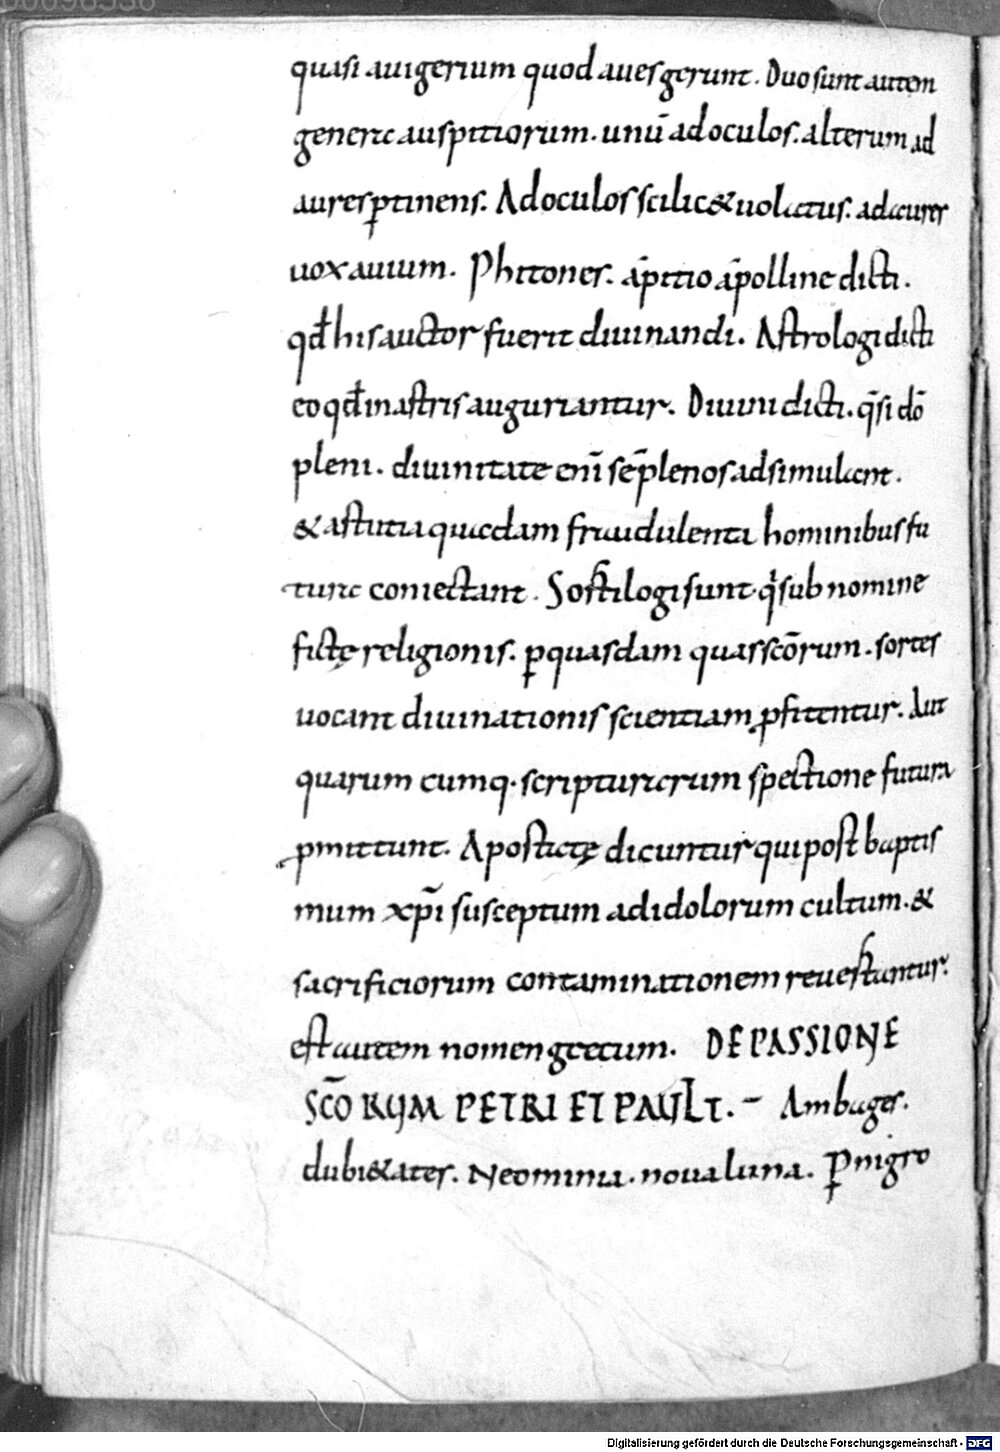 quasi auigerium quod aues gerunt. Duo sunt autem
genera auspitiorum. unū ad oculos. alterum ad
aures ꝑtinens. Ad oculos scilic& uolatus. ad aures
uox auium. Phitones. a ṕitio aṕolline dicti.
qđ his auctor fuerit diuinandi. Astrologi dicti
eo qđ in astris auguriantur. Diuini dicti. q̄si dō
pleni. diuinitate eni᷎ se ̄plenos adsimulant.
& astutia quadam fraudulenta hominibus fu
tura coniectant. Sortilogi sunt. q̇ sub nomine
fictę religionis. ꝑ quasdam quas scōrum. sortes
uocant diuinationis scientiam ꝓfitentur. Aut
quarum cumq· scripturarum spectione futura
ꝓmittunt. Apostatę dicuntur qui post baptis
mum xp̄i susceptum ad idolorum cultum. &
sacrificiorum contaminationem reuertuntur.
est autem nomen grecum. DE PASSIONE
SCŌRUM PETRI ET PAULI. – Ambages.
dubi&ates. Neominia. noua luna. ꝑ nigro
00096536
Digitalisierung gefördert durch die Deutsche Forschungsgemeinschaft - DFG